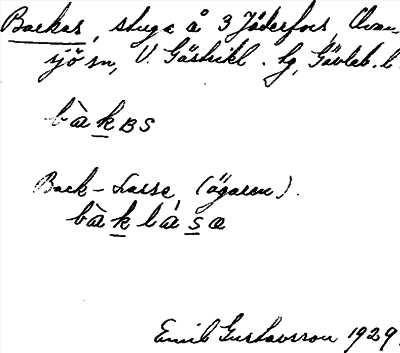 Backas, stuga å 3 Jäderfors, Ovan-
sjö sn, V. Gästrikl. hg, Gävleb. l.
bàkBS
Back-Lasse, (ägaren).
bàk lásæ
Emil Gustavsson 1929.